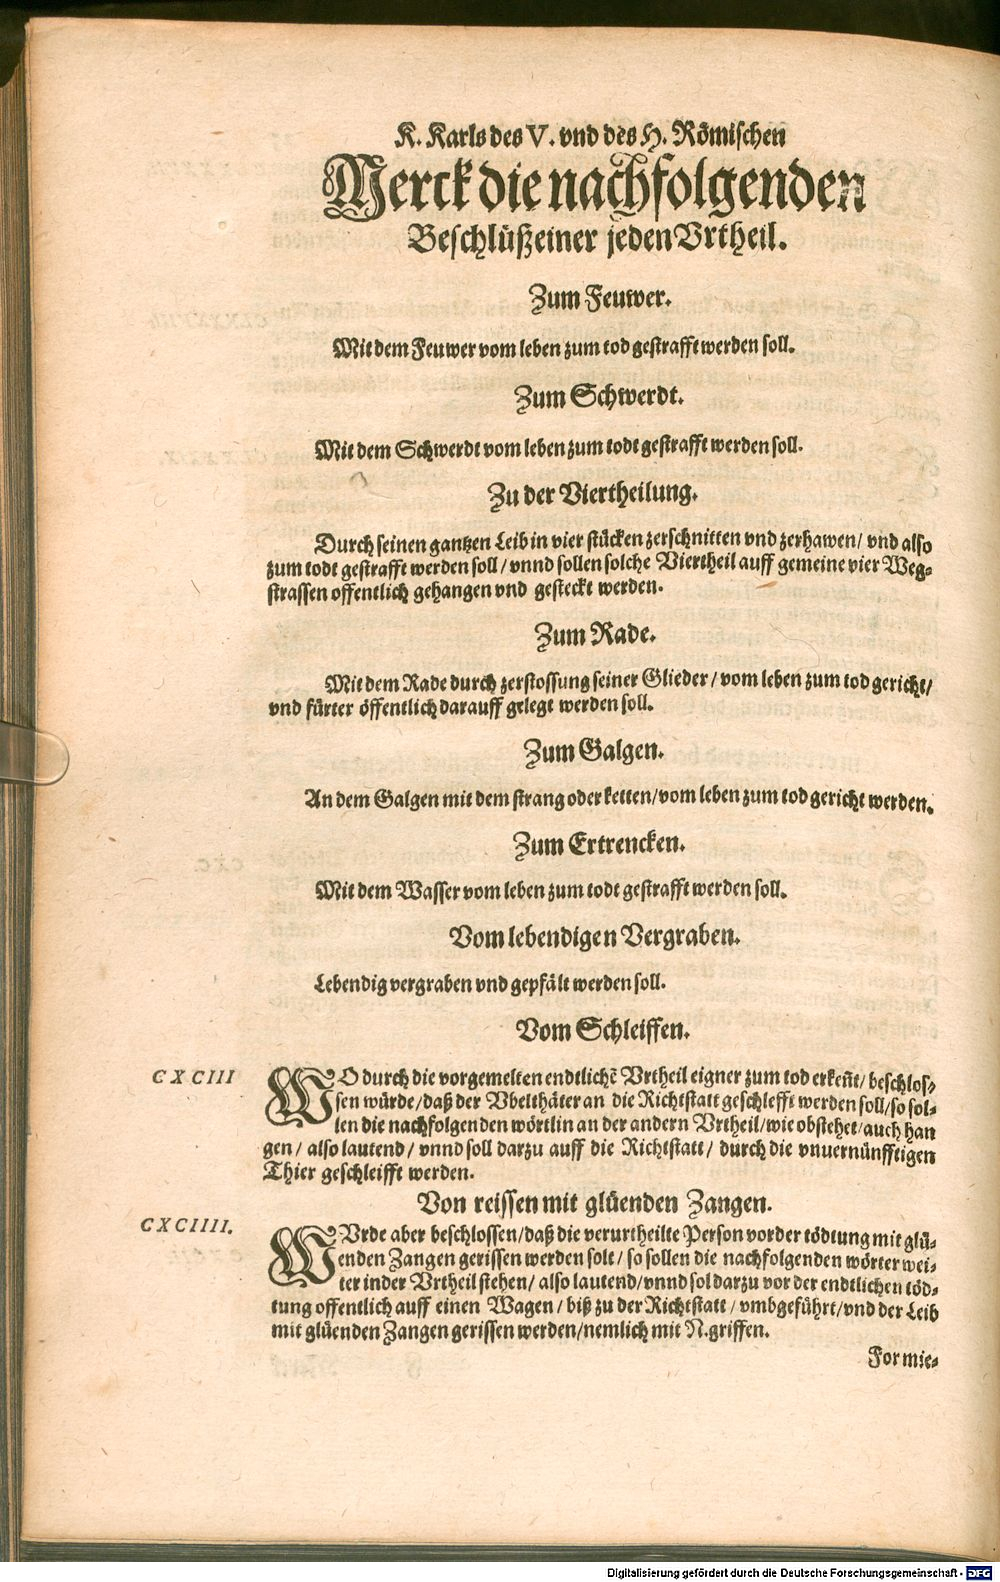 K. Karls des V. vnd des H. Römischen
Merck die nachfolgenden
Beschlüß einer jeden Vrtheil.
Zum Feuwer.
Mit dem Feuwer vom leben zum tod gestrafft werden soll.
Zum Schwerdt.
Mit dem Schwerdt vom leben zum todt gestrafft werden soll.
Zu der Viertheilung.
Durch seinen gantzen Leib in vier stücken zerschnitten vnd zerhawen/ vnd also
zum todt gestrafft werden soll/ vnnd sollen solche Viertheil auff gemeine vier Weg-
strassen offentlich gehangen vnd gesteckt werden.
Zum Rade.
Mit dem Rade durch zerstossung seiner Glieder/ vom leben zum tod gericht/
vnd fürter öffentlich darauff gelegt werden soll.
Zum Galgen.
An dem Galgen mit dem strang oder ketten/ vom leben zum tod gericht werden.
Zum Ertrencken.
Mit dem Wasser vom leben zum todt gestrafft werden soll.
Vom lebendigen Vergraben.
Lebendig vergraben vnd gepfält werden soll.
Vom Schleiffen.
CXCIII
WO durch die vorgemelten endtlichē Vrtheil eigner zum tod erkeñt/ beschlos-
sen würde/ daß der Vbelthäter an die Richtstatt geschlefft werden soll/ so sol-
len die nachfolgenden wörtlin an der andern Vrtheil/ wie obstehet/ auch han
gen/ also lautend/ vnnd soll darzu auff die Richtstatt/ durch die vnuernünfftigen
Thier geschleifft werden.
Von reissen mit glüenden Zangen.
CXCIIII.
WVrde aber beschlossen/ daß die verurtheilte Person vor der tödtung mit glü-
enden Zangen gerissen werden solt/ so sollen die nachfolgenden wörter wei-
ter in der Vrtheil stehen/ also lautend/ vnnd sol darzu vor der endtlichen töd-
tung offentlich auff einen Wagen/ biß zu der Richtstatt/ vmbgeführt/ vnd der Leib
mit glüenden Zangen gerissen werden/ nemlich mit N. griffen.
For mie-
Digitalisierung gefördert durch die Deutsche Forschungsgemeinschaft - DFG